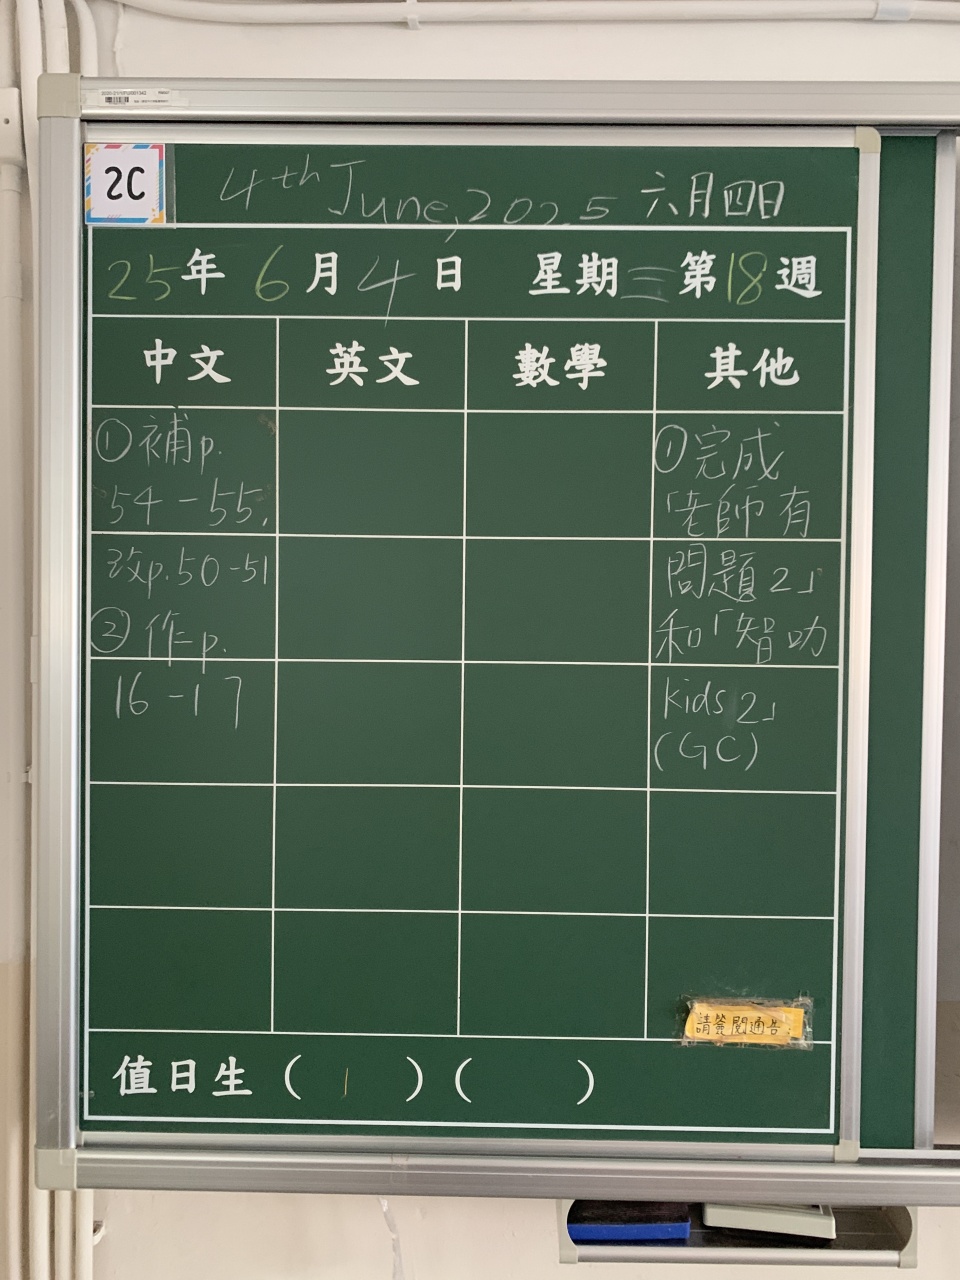 2C
4th June, 2025 六月四日
25年 6月4日 星期三第18週
中文 英文 數學 其他
①補p.
54-55,
改p.50-51
②作p.
16-17
①完成
「老師有
問題2」
和「智叻
kids 2」
(GC)
請簽閱通告
值日生 ( 1 ) ( )